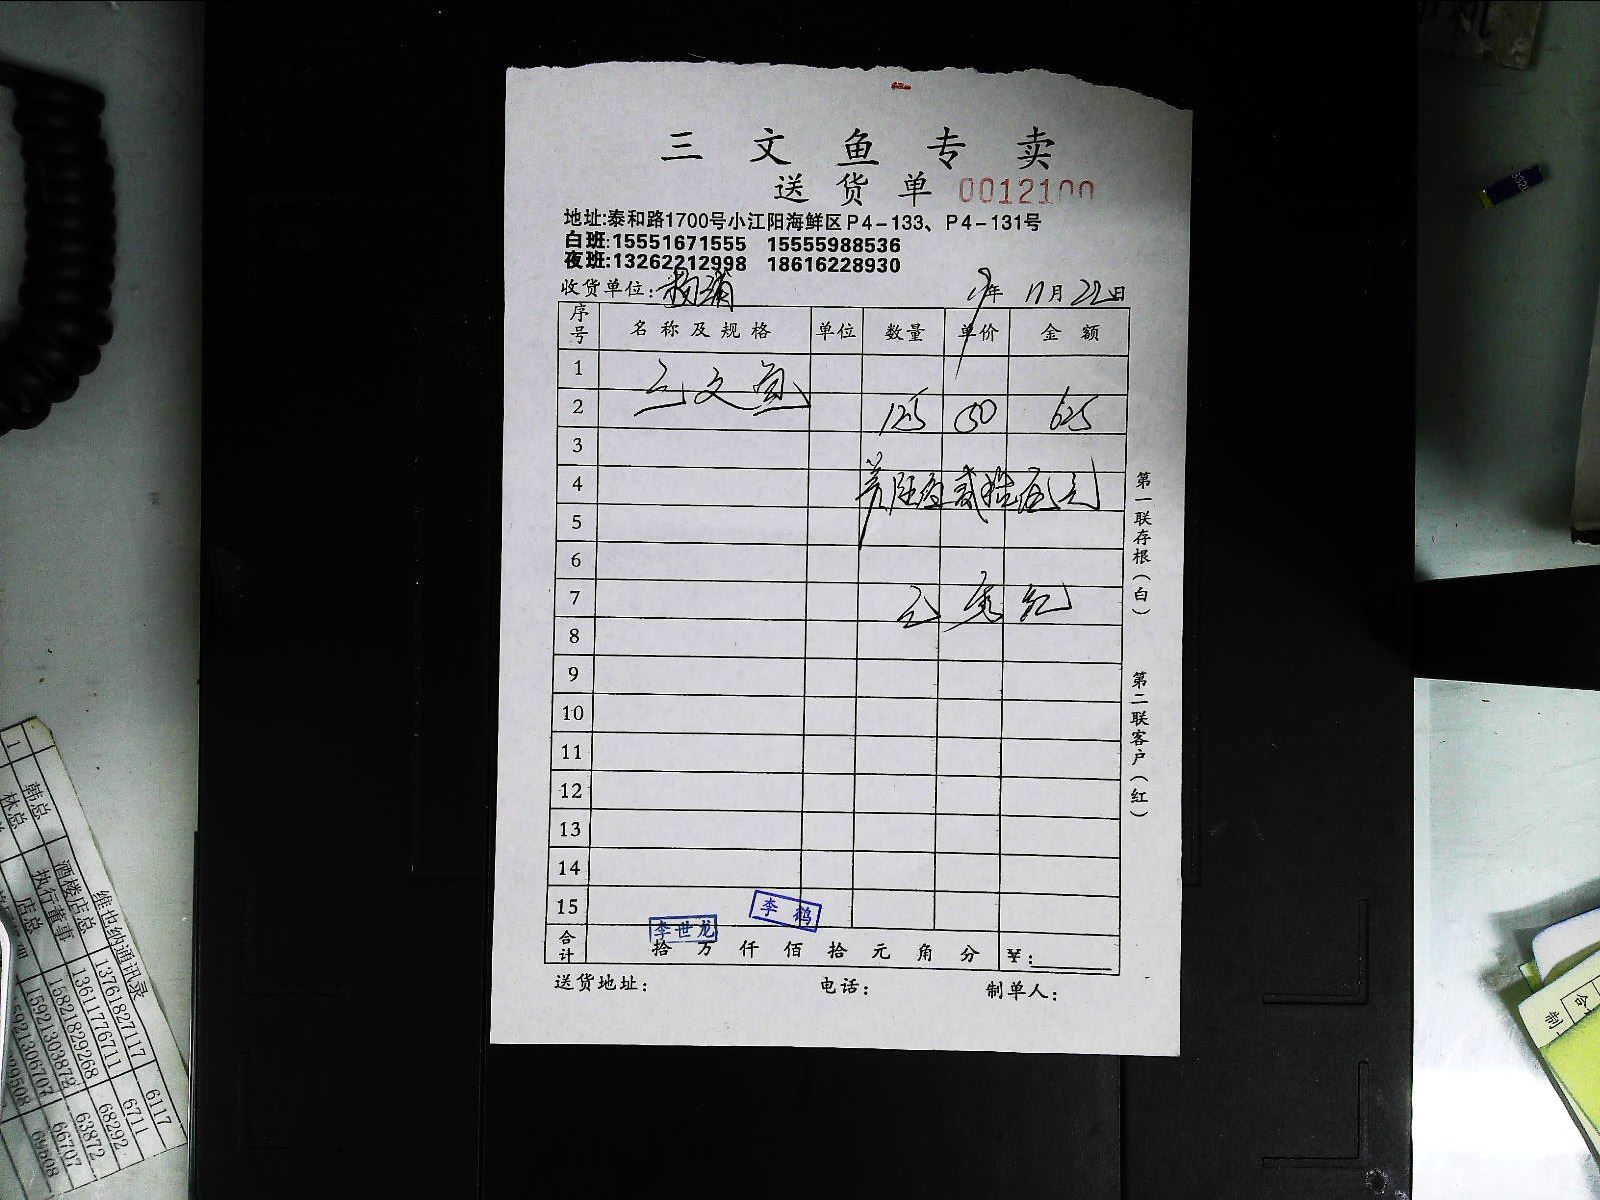 三文鱼专卖
送货单 0012100
地址:泰和路1700号小江阳海鲜区P4-133、P4-131号
白班:15551671555 15555988536
夜班:13262212998 18616228930
收货单位: 杨浦 19年 11月 22日
序号 名称及规格 单位 数量 单价 金额
1 三文鱼
2 125 50 625
3
4 陆佰贰拾伍元
5
6
7
8
9
10
11
12
13
14
15 李鹤
李世龙
合计 拾 万 仟 佰 拾 元 角 分 ¥:
送货地址: 电话: 制单人:
第一联存根(白)
第二联客户(红)
维也纳通讯录
1 韩总 酒楼店总 13761827117 6117
林总 执行董事 13611776711 6711
店总 15821829268 68292
15921303872 63872
66707
69508